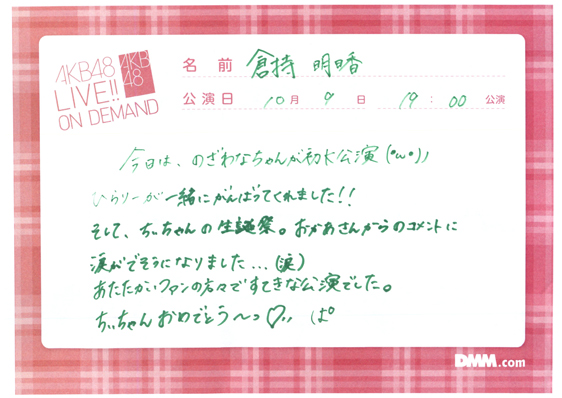 AKB48
LIVE!!
ON DEMAND
AKB
48
名前 倉持 明日香
公演日 10月 9日 19:00 公演
今日は、のざわなちゃんが初K公演(•ω•)ﾉ
ひらりーが一緒にがんばってくれました!!
そして、ちぃちゃんの生誕祭。おかあさんからのコメントに
涙がでそうになりました...(涙)
あたたかいファンの方々ですてきな公演でした。
ちぃちゃんおめでとう〜っ♡〃 ぱ°
DMM.com